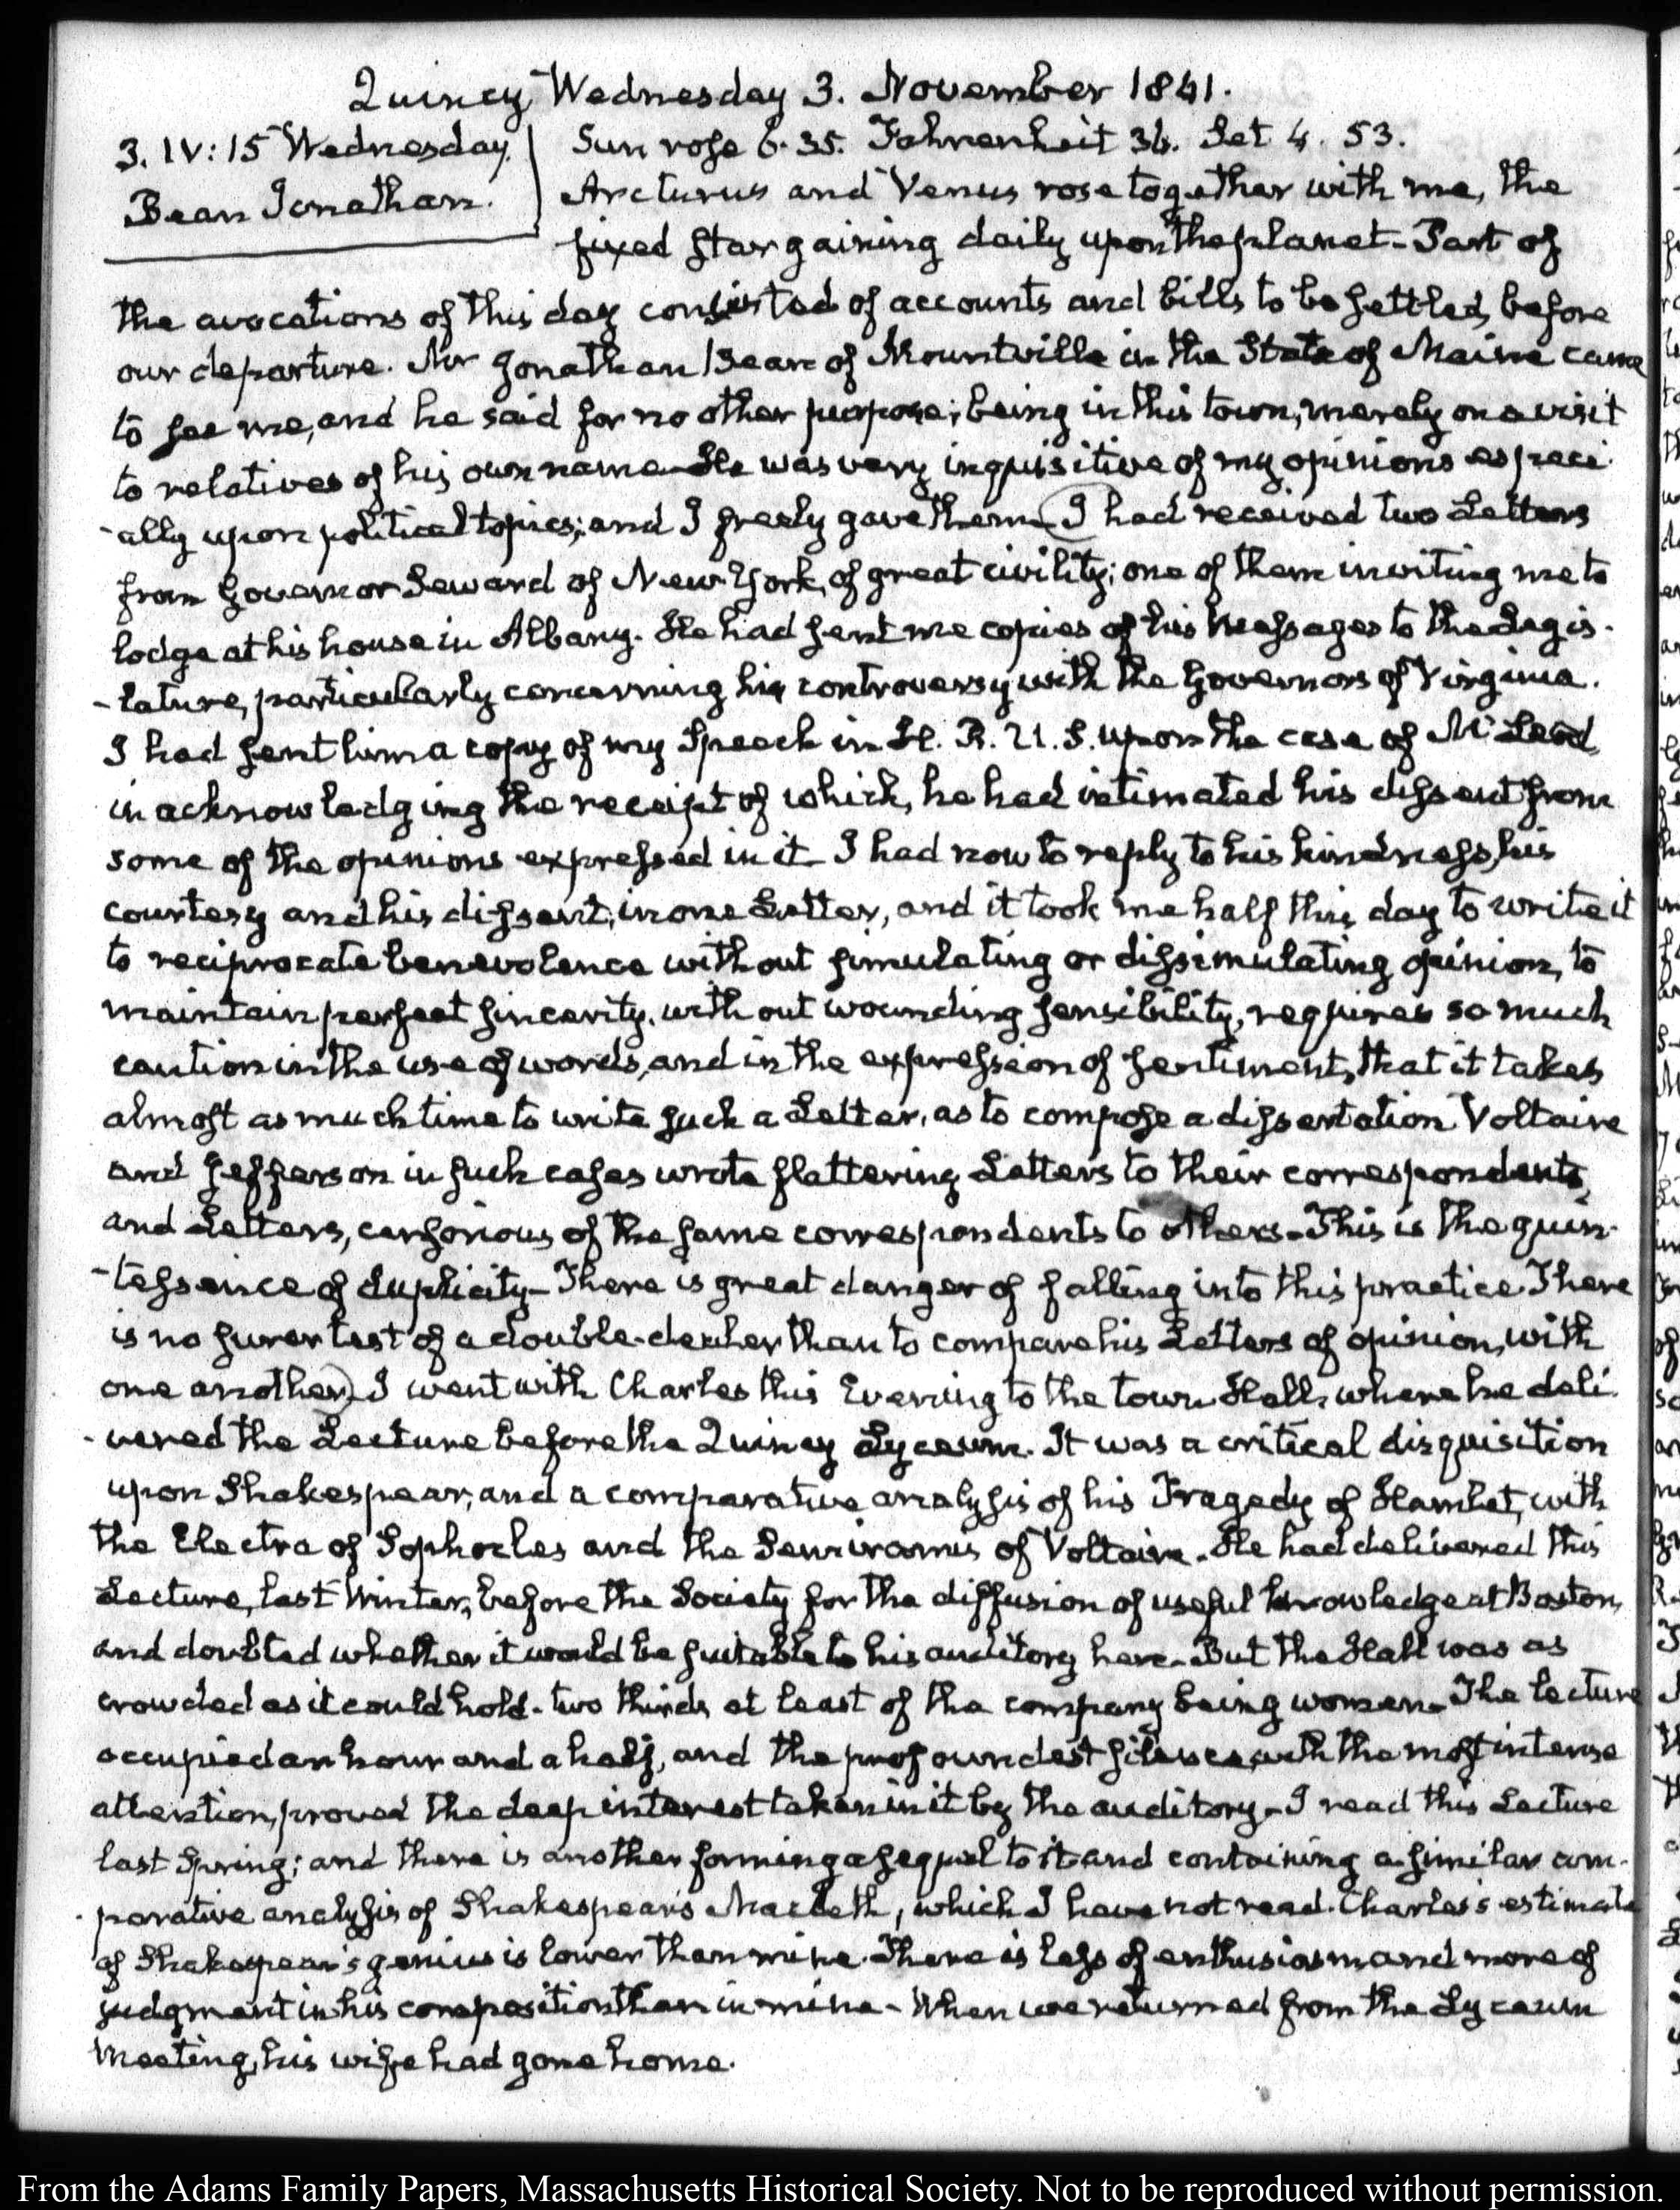 Quincy Wednesday 3. November 1841.
3. IV: 15 Wednesday.
Bean Jonathan.
Sun rose 6. 35. Fahrenheit 36. Set 4. 53.
Arcturus and Venus rose together with me, the
fixed star gaining daily upon the planet – Part of
the avocations of this day consisted of accounts and bills to be settled, before
our departure. Mr Jonathan Bean of Mountville in the State of Maine came
to see me, and he said for no other purpose; being in this town, merely on a visit
to relatives of his own name – He was very inquisitive of my opinions especi-
-ally upon political topics; and I freely gave them – I had received two Letters
from Governor Seward of New-York, of great civility; one of them inviting me to
lodge at his house in Albany. He had sent me copies of his Messages to the Legis-
-lature, particularly concerning his controversy with the Governors of Virginia.
I had sent him a copy of my Speech in H. R. U. S. upon the case of McLeod,
in acknowledging the receipt of which, he had intimated his dissent from
some of the opinions expressed in it – I had now to reply to his kindness, his
courtesy and his dissent, in one Letter, and it took me half this day to write it
to reciprocate benevolence without simulating or dissimulating opinion, to
maintain perfect sincerity, without wounding sensibility, requires so much
caution in the use of words, and in the expression of sentiment, that it takes
almost as much time to write such a Letter, as to compose a dissertation Voltaire
and Jefferson in such cases wrote flattering Letters to their correspondents,
and Letters, censorious of the same correspondents to others – This is the quin-
-tessence of duplicity – There is great danger of falling into this practice. There
is no surer test of a double-dealer than to compare his Letters of opinion, with
one another) I went with Charles this Evening to the town Hall, where he deli-
-vered the Lecture before the Quincy Lyceum. It was a critical disquisition
upon Shakespear, and a comparative analysis of his Tragedy of Hamlet, with
the Electra of Sophocles and the Semiramis of Voltaire. He had delivered this
Lecture, last Winter, before the Society for the diffusion of useful knowledge at Boston,
and doubted whether it would be suitable to his auditory here – But the Hall was as
crowded as it could hold – two thirds at least of the company being women – The lecture
occupied an hour and a half, and the profoundest silence with the most intense
attention, proved the deep interest taken in it by the auditory – I read this Lecture
last Spring; and there is another forming a sequel to it and containing a similar com-
-parative analysis of Shakespear's Macbeth, which I have not read. Charles's estimate
of Shakespear's genius is lower than mine. There is less of enthusiasm and more of
judgment in his composition than in mine – When we returned from the Lyceum
Meeting, his wife had gone home.
From the Adams Family Papers, Massachusetts Historical Society. Not to be reproduced without permission.